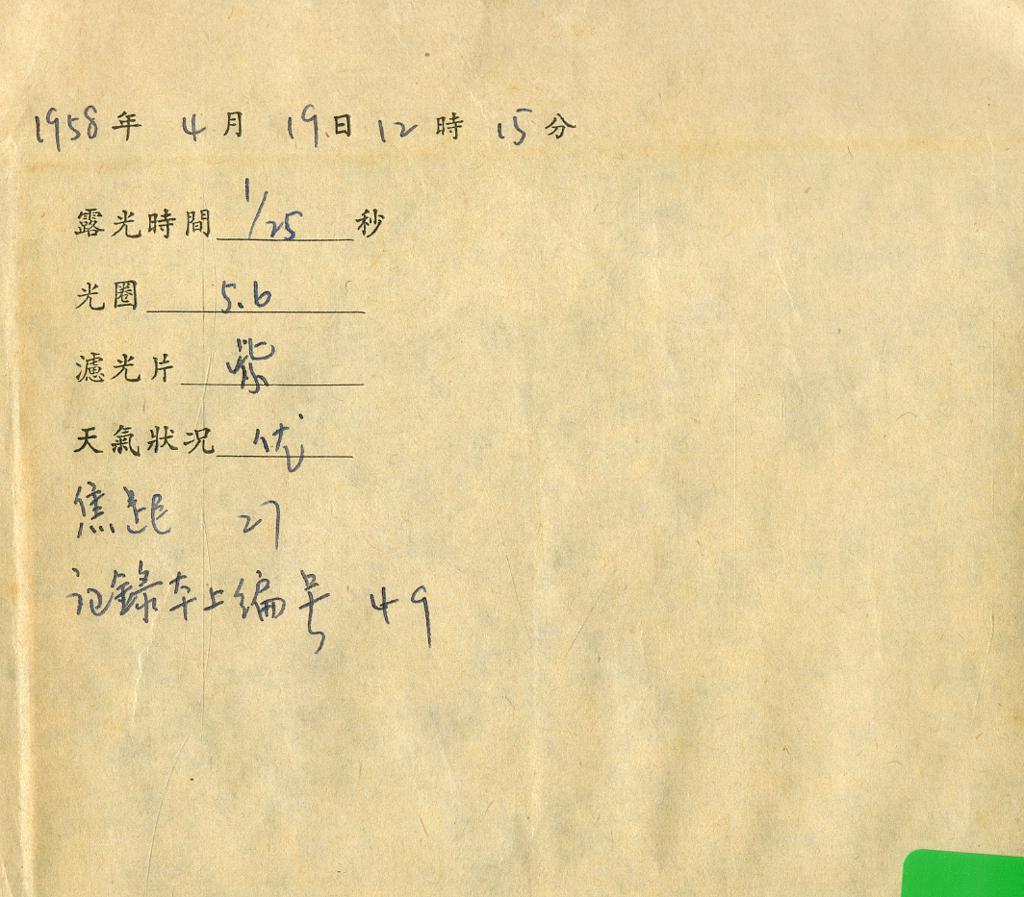 1958年 4月 19日 12時 15分
露光時間 1/25 秒
光圈 5.6
濾光片 紫
天氣狀况 优
焦距 27
记錄本上编号 49